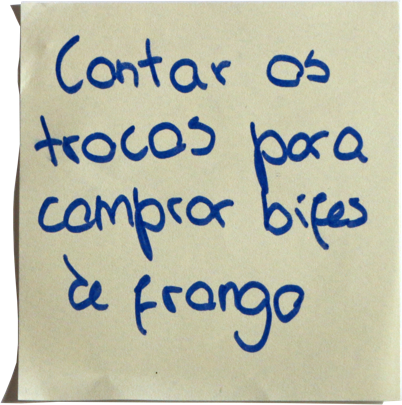 Contar os
trocos para
comprar bifes
de frango